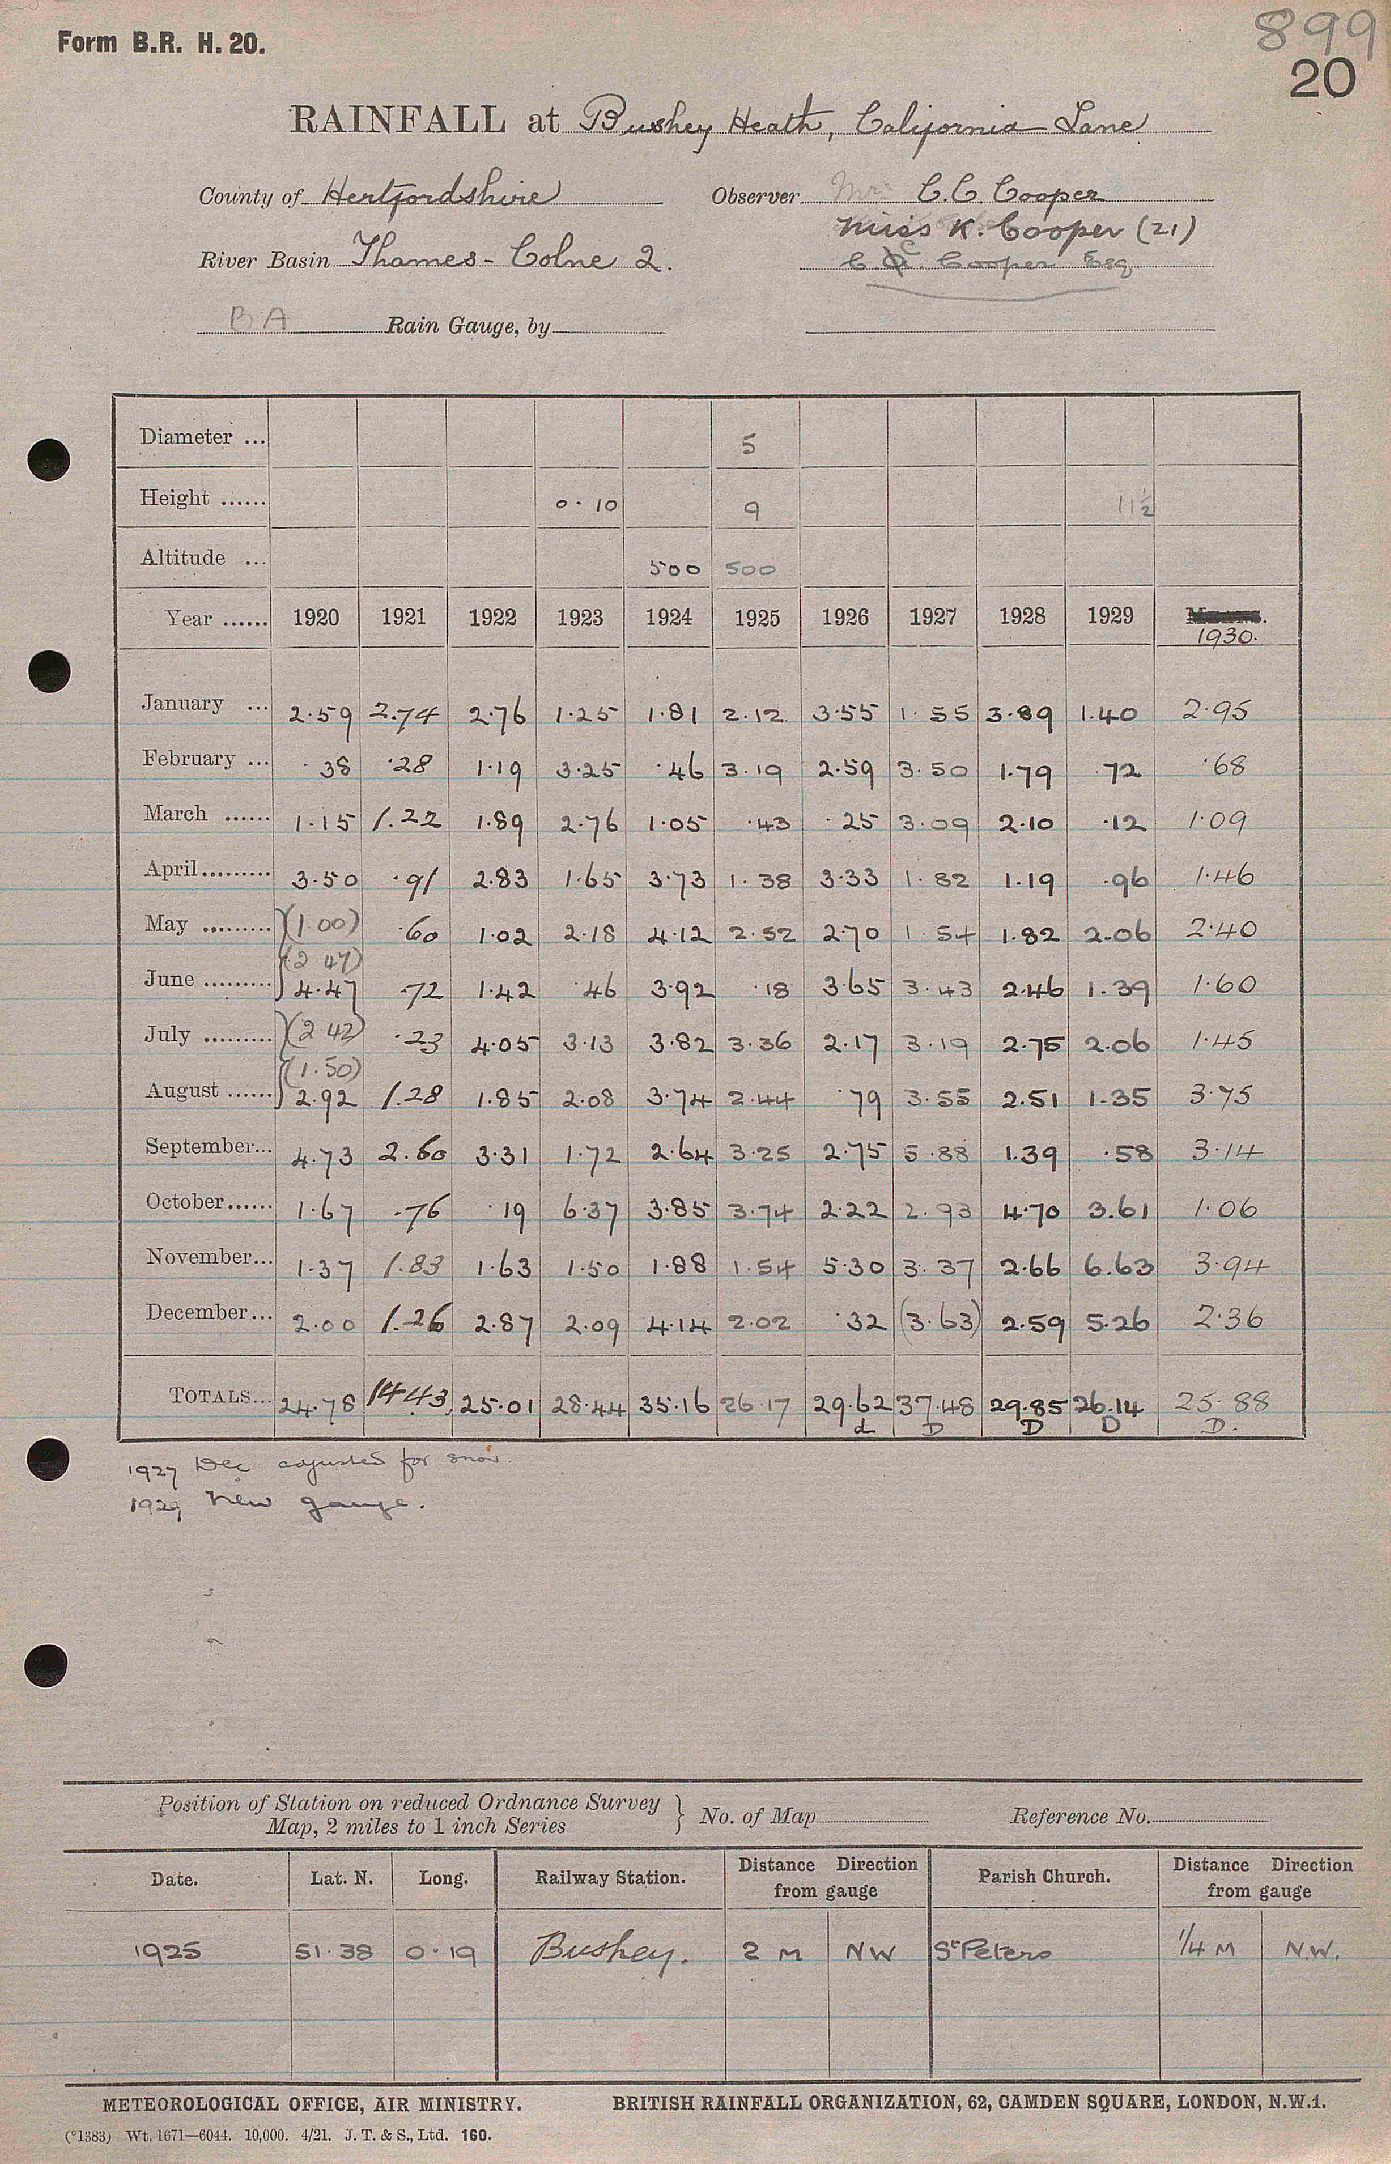 899
Form B.R. H. 20.
20
RAINFALL at Bushey Heath, California Lane
County of Hertfordshire Observer Mrs C.C. Cooper
Miss K. Cooper (21)
River Basin Thames - Colne 2. C. C. Cooper Esq
BA Rain Gauge, by
Diameter ... 5
Height ...... 0.10 9 11½
Altitude ... 500 500
Year ...... 1920 1921 1922 1923 1924 1925 1926 1927 1928 1929 1930.
January ... 2.59 2.74 2.76 1.25 1.81 2.12 3.55 1.55 3.89 1.40 2.95
February ... .38 .28 1.19 3.25 .46 3.19 2.59 3.50 1.79 .72 .68
March ...... 1.15 1.22 1.89 2.76 1.05 .43 .25 3.09 2.10 .12 1.09
April ......... 3.50 .91 2.83 1.65 3.73 1.38 3.33 1.82 1.19 .96 1.46
May ......... (1.00) .60 1.02 2.18 4.12 2.52 2.70 1.54 1.82 2.06 2.40
(2 47)
June ......... 4.47 .72 1.42 .46 3.92 .18 3.65 3.43 2.46 1.39 1.60
July ......... (2 42) .23 4.05 3.13 3.82 3.36 2.17 3.19 2.75 2.06 1.45
(1.50)
August ...... 2.92 1.28 1.85 2.08 3.74 2.44 .79 3.55 2.51 1.35 3.75
September... 4.73 2.60 3.31 1.72 2.64 3.25 2.75 5.88 1.39 .58 3.14
October...... 1.67 .76 .19 6.37 3.85 3.74 2.22 2.93 4.70 3.61 1.06
November... 1.37 1.83 1.63 1.50 1.88 1.54 5.30 3.37 2.66 6.63 3.94
December... 2.00 1.26 2.87 2.09 4.14 2.02 .32 (3.63) 2.59 5.26 2.36
TOTALS... 24.78 14.43 25.01 28.44 35.16 26.17 29.62 37.48 29.85 26.14 25.88
d D D D D.
1927 Dec adjusted for snow.
1929 New gauge.
Position of Station on reduced Ordnance Survey
Map, 2 miles to 1 inch Series } No. of Map Reference No.
Date. Lat. N. Long. Railway Station. Distance Direction from gauge Parish Church. Distance Direction from gauge
1925 51.38 0.19 Bushey. 2 M NW St Peters ¼ M N.W.
METEOROLOGICAL OFFICE, AIR MINISTRY. BRITISH RAINFALL ORGANIZATION, 62, CAMDEN SQUARE, LONDON, N.W.1.
(*1383) Wt. 1671—6044. 10,000. 4/21. J. T. & S., Ltd. 160.